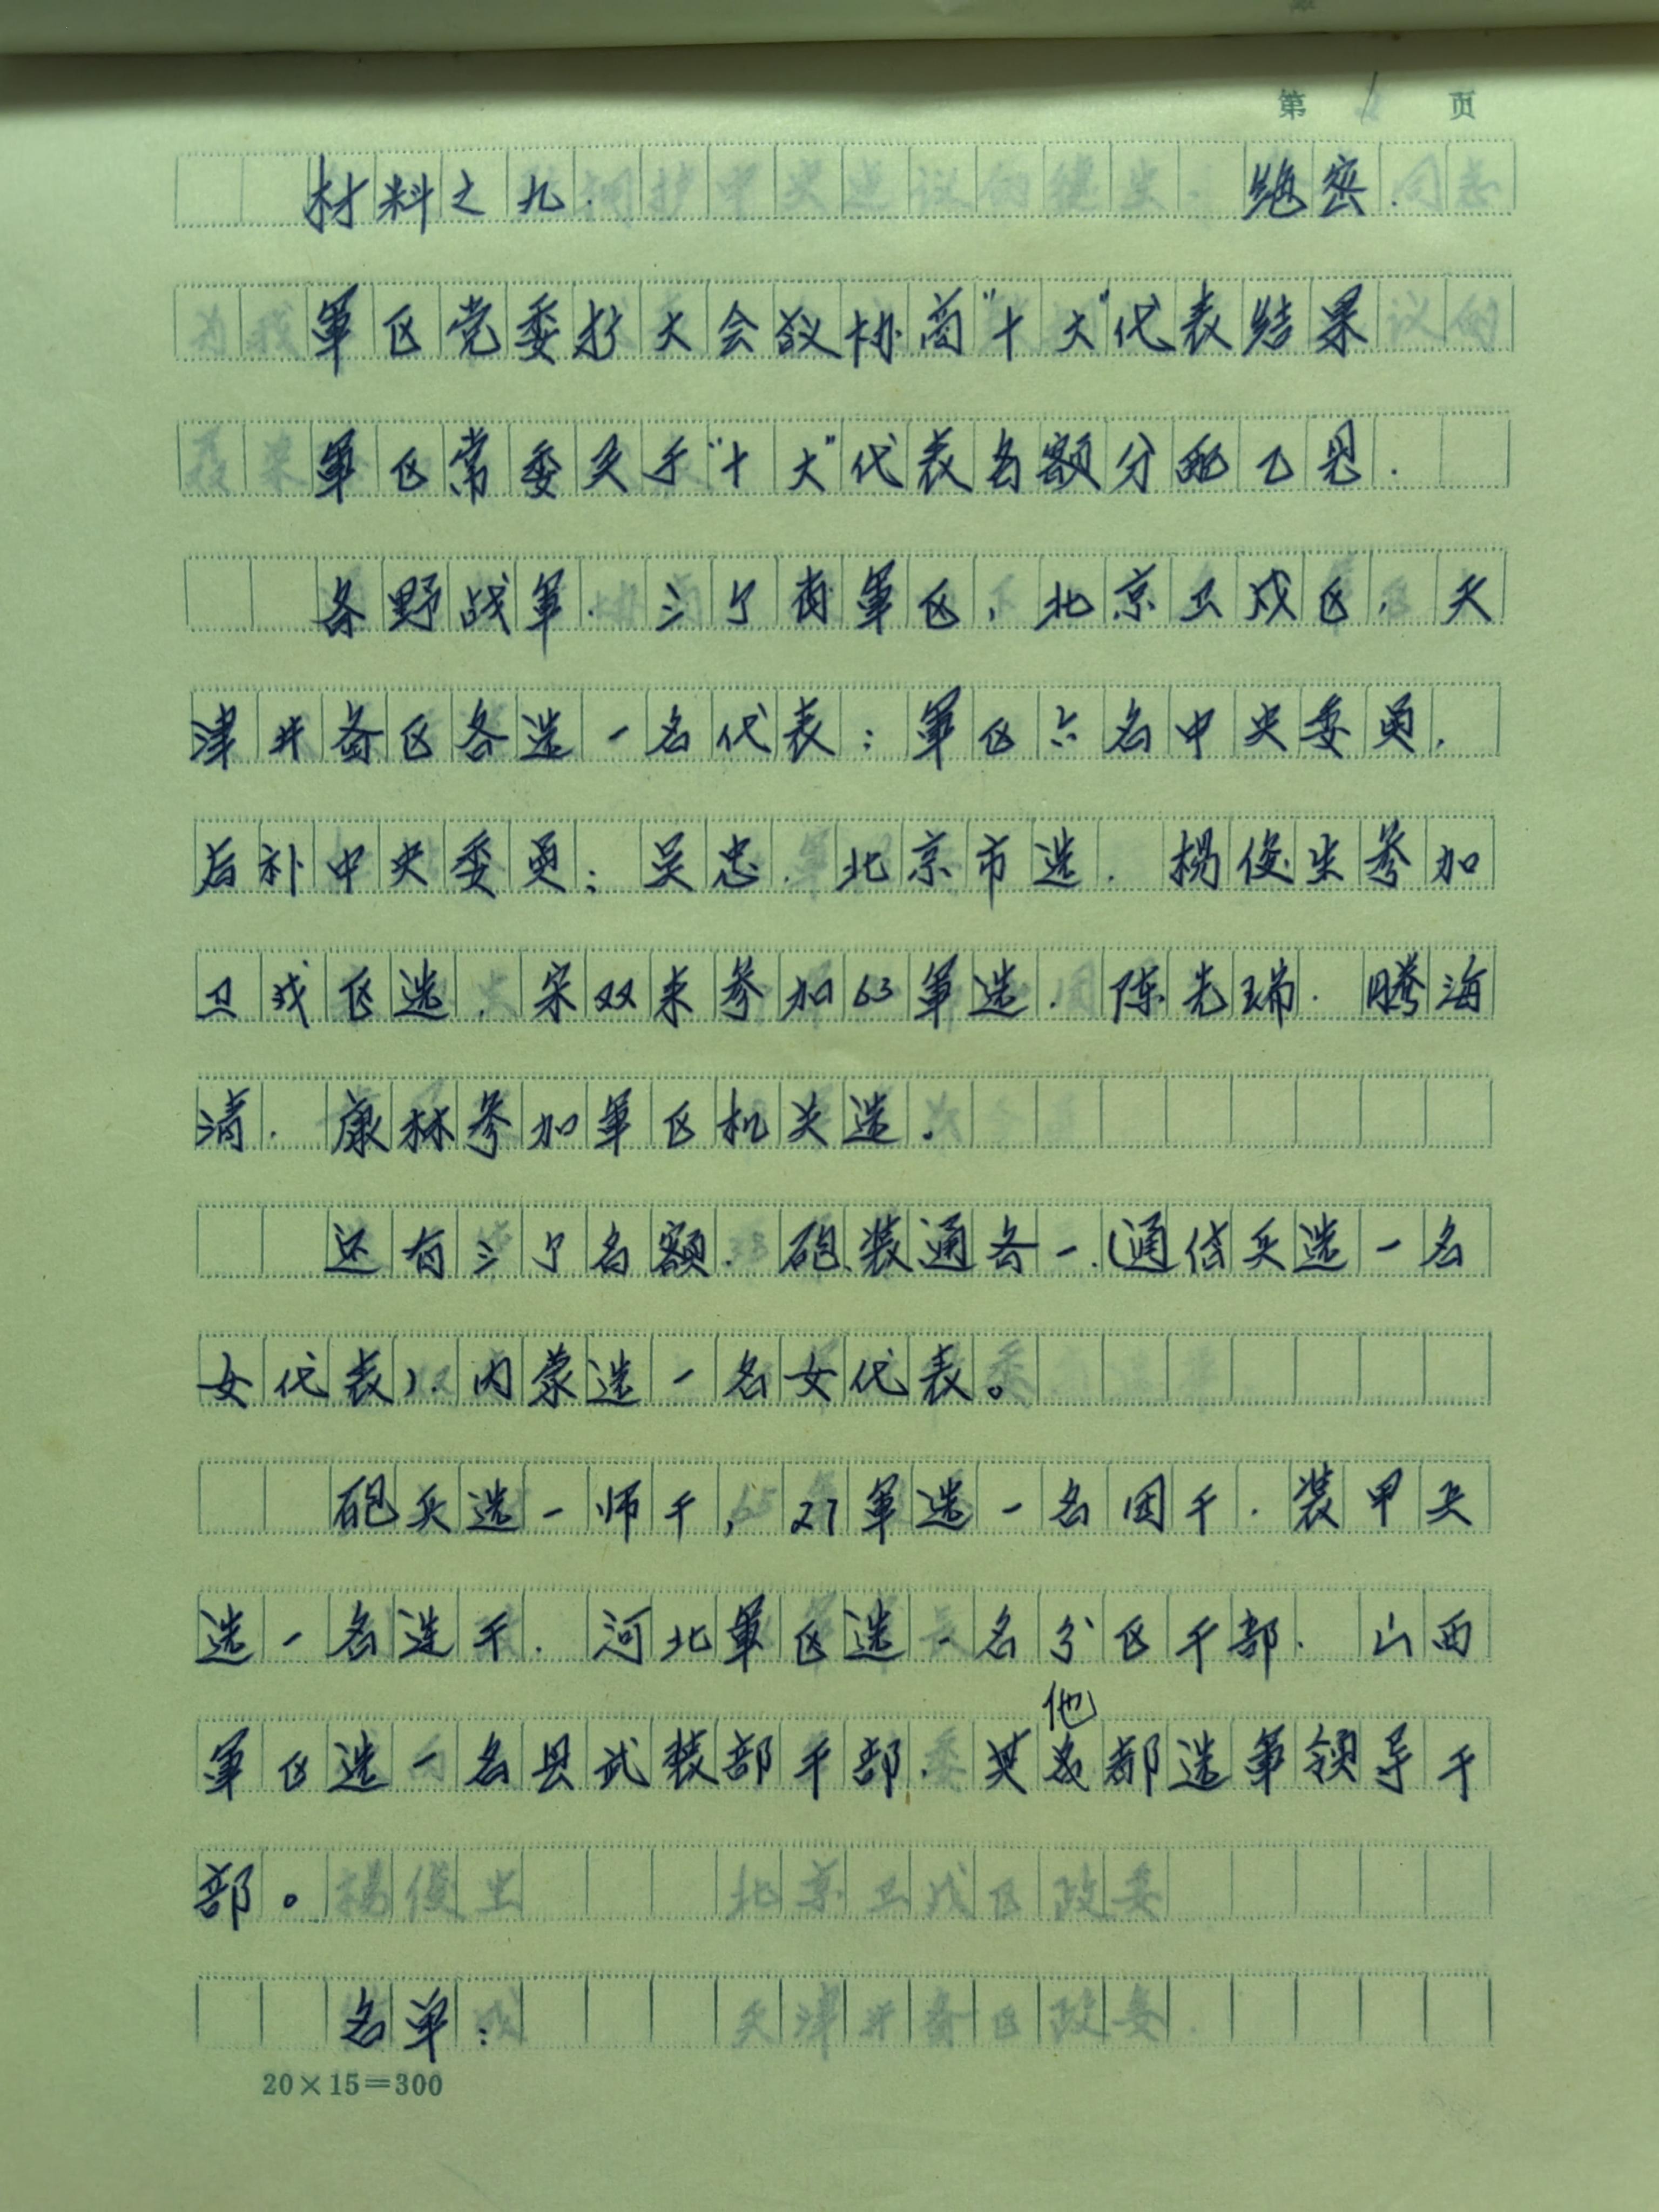 第 1 页
材料之九. 绝密.
軍区党委扩大会议协商"十大"代表结果
軍区常委关于"十大"代表名额分配乙见.
各野战軍.三个省軍区,北京卫戍区,天
津井备区各选一名代表;軍区六名中央委员,
后补中央委员;吴忠.北京市选.杨俊生参加
卫戍区选.宋双来参加63軍选.陈先瑞.腾海
清.康林参加軍区机关选.
还有三个名额.砲.装通各一.(通信兵选一名
女代表).内蒙选一名女代表。
砲兵选一师干,27軍选一名团干.装甲兵
选一名连干.河北軍区选一名分区干部.山西
他
軍区选一名县武装部干部.其都选軍领导干
部。
名单:
20×15=300